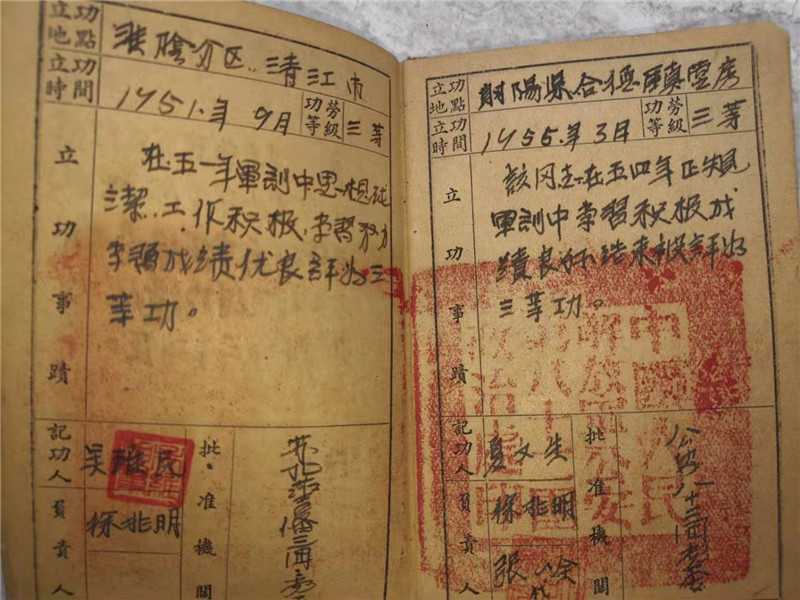 立功地點 淮陰分区..清江市
立功時間 1951.年9月 功勞等級 三等
立功事蹟
在五一年軍訓中思想純
潔.工作积极,学習努力
学習成绩优良評为三
等功。
記功人 吴 民
負責人 徐兆明
批准機關
立功地點 射陽县合德鎮
立功時間 1955.年3月 功勞等級 三等
立功事蹟
該同志在五四年正規
軍訓中学習积极成
績良好結束被評为
三等功。
記功人 夏文生
負責人 徐兆明
張
代
批准機關 公安八十三团
中國人民
解放軍公安